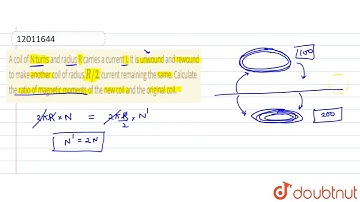 12011644
A coil of N turns and radius R carries a current I. It is unwound and rewound
to make another coil of radius R/2, current remaining the same. Calculate
the ratio of magnetic moments of the new coil and the original coil.
100
2πR × N = 2πR/2 × N'
200
N' = 2N
doubtnut